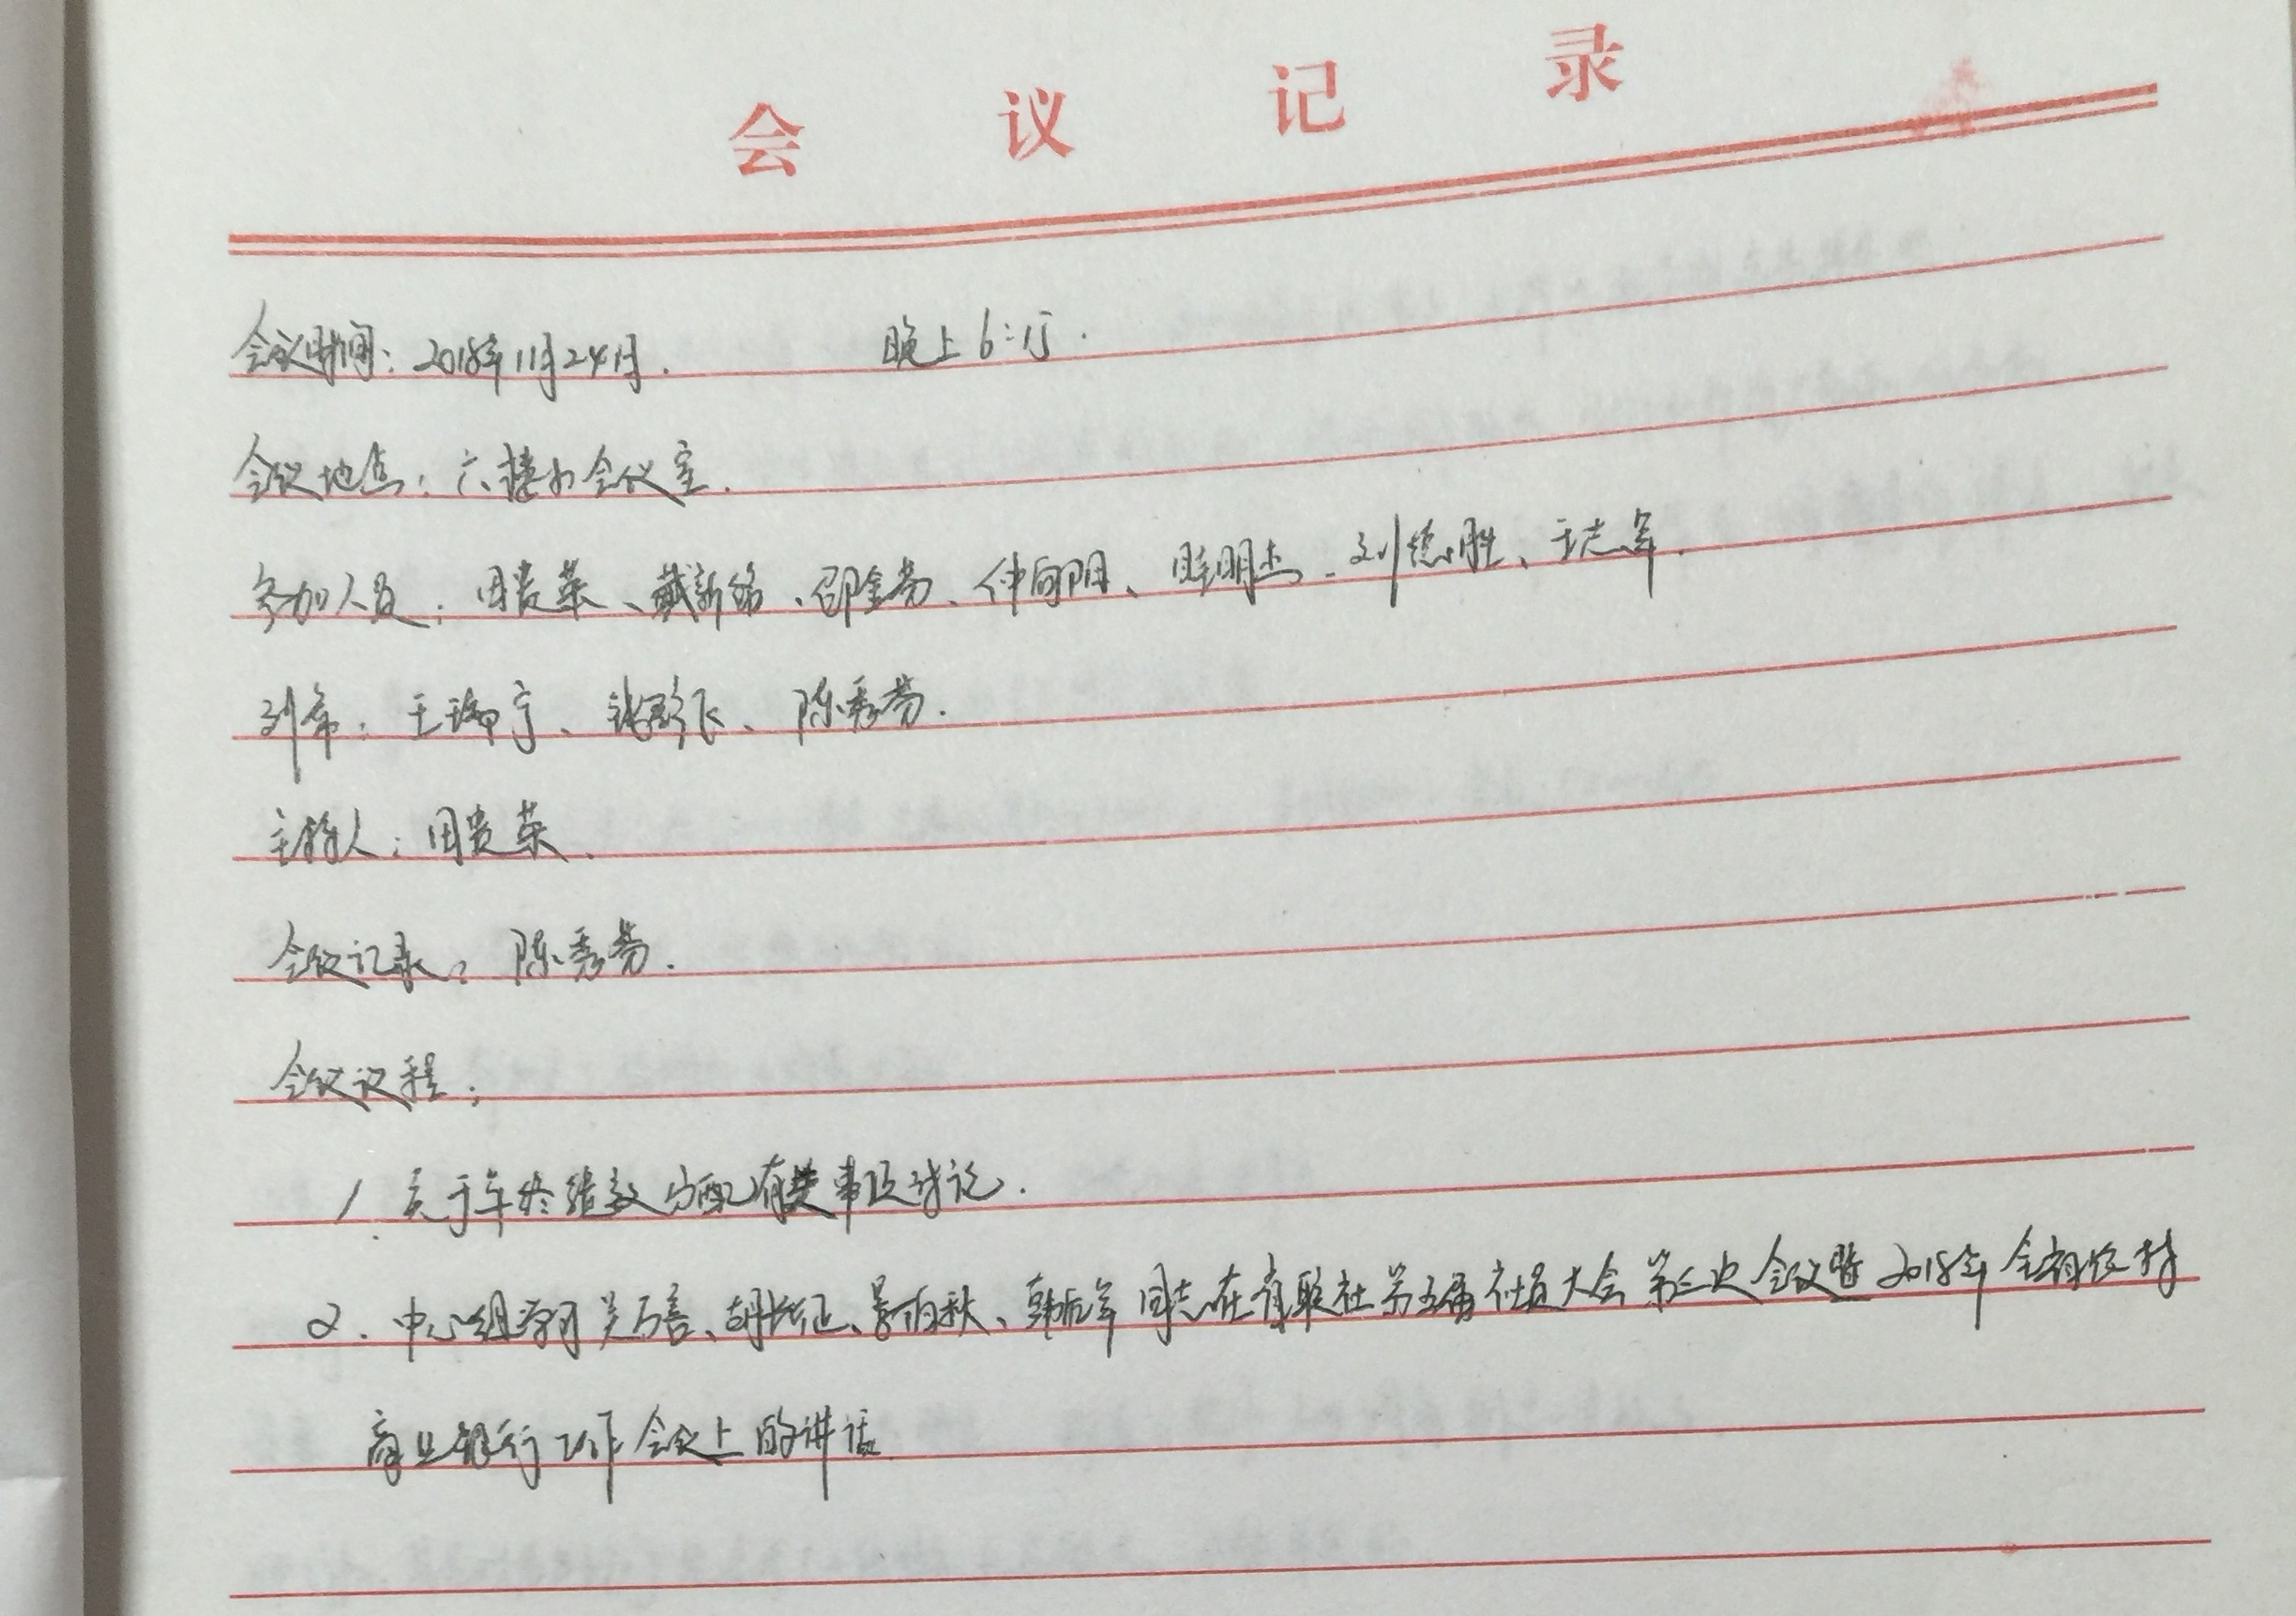 会议记录
会议时间：2018年11月24日. 晚上6:15.
会议地点：六楼小会议室.
参加人员：田贵荣、戴新铭、邵金芳、仲向阳、眭明杰、刘德胜、王志军.
列席：王瑞宇、钱彩飞、陈秀芳.
主持人：田贵荣.
会议记录：陈秀芳.
会议议程：
1. 关于年终绩效分配有关事项讨论.
2. 中心组学习吴万善、胡长征、景雨秋、韩后军同志在省联社第五届社员大会第三次会议暨2018年全省农村
商业银行工作会议上的讲话